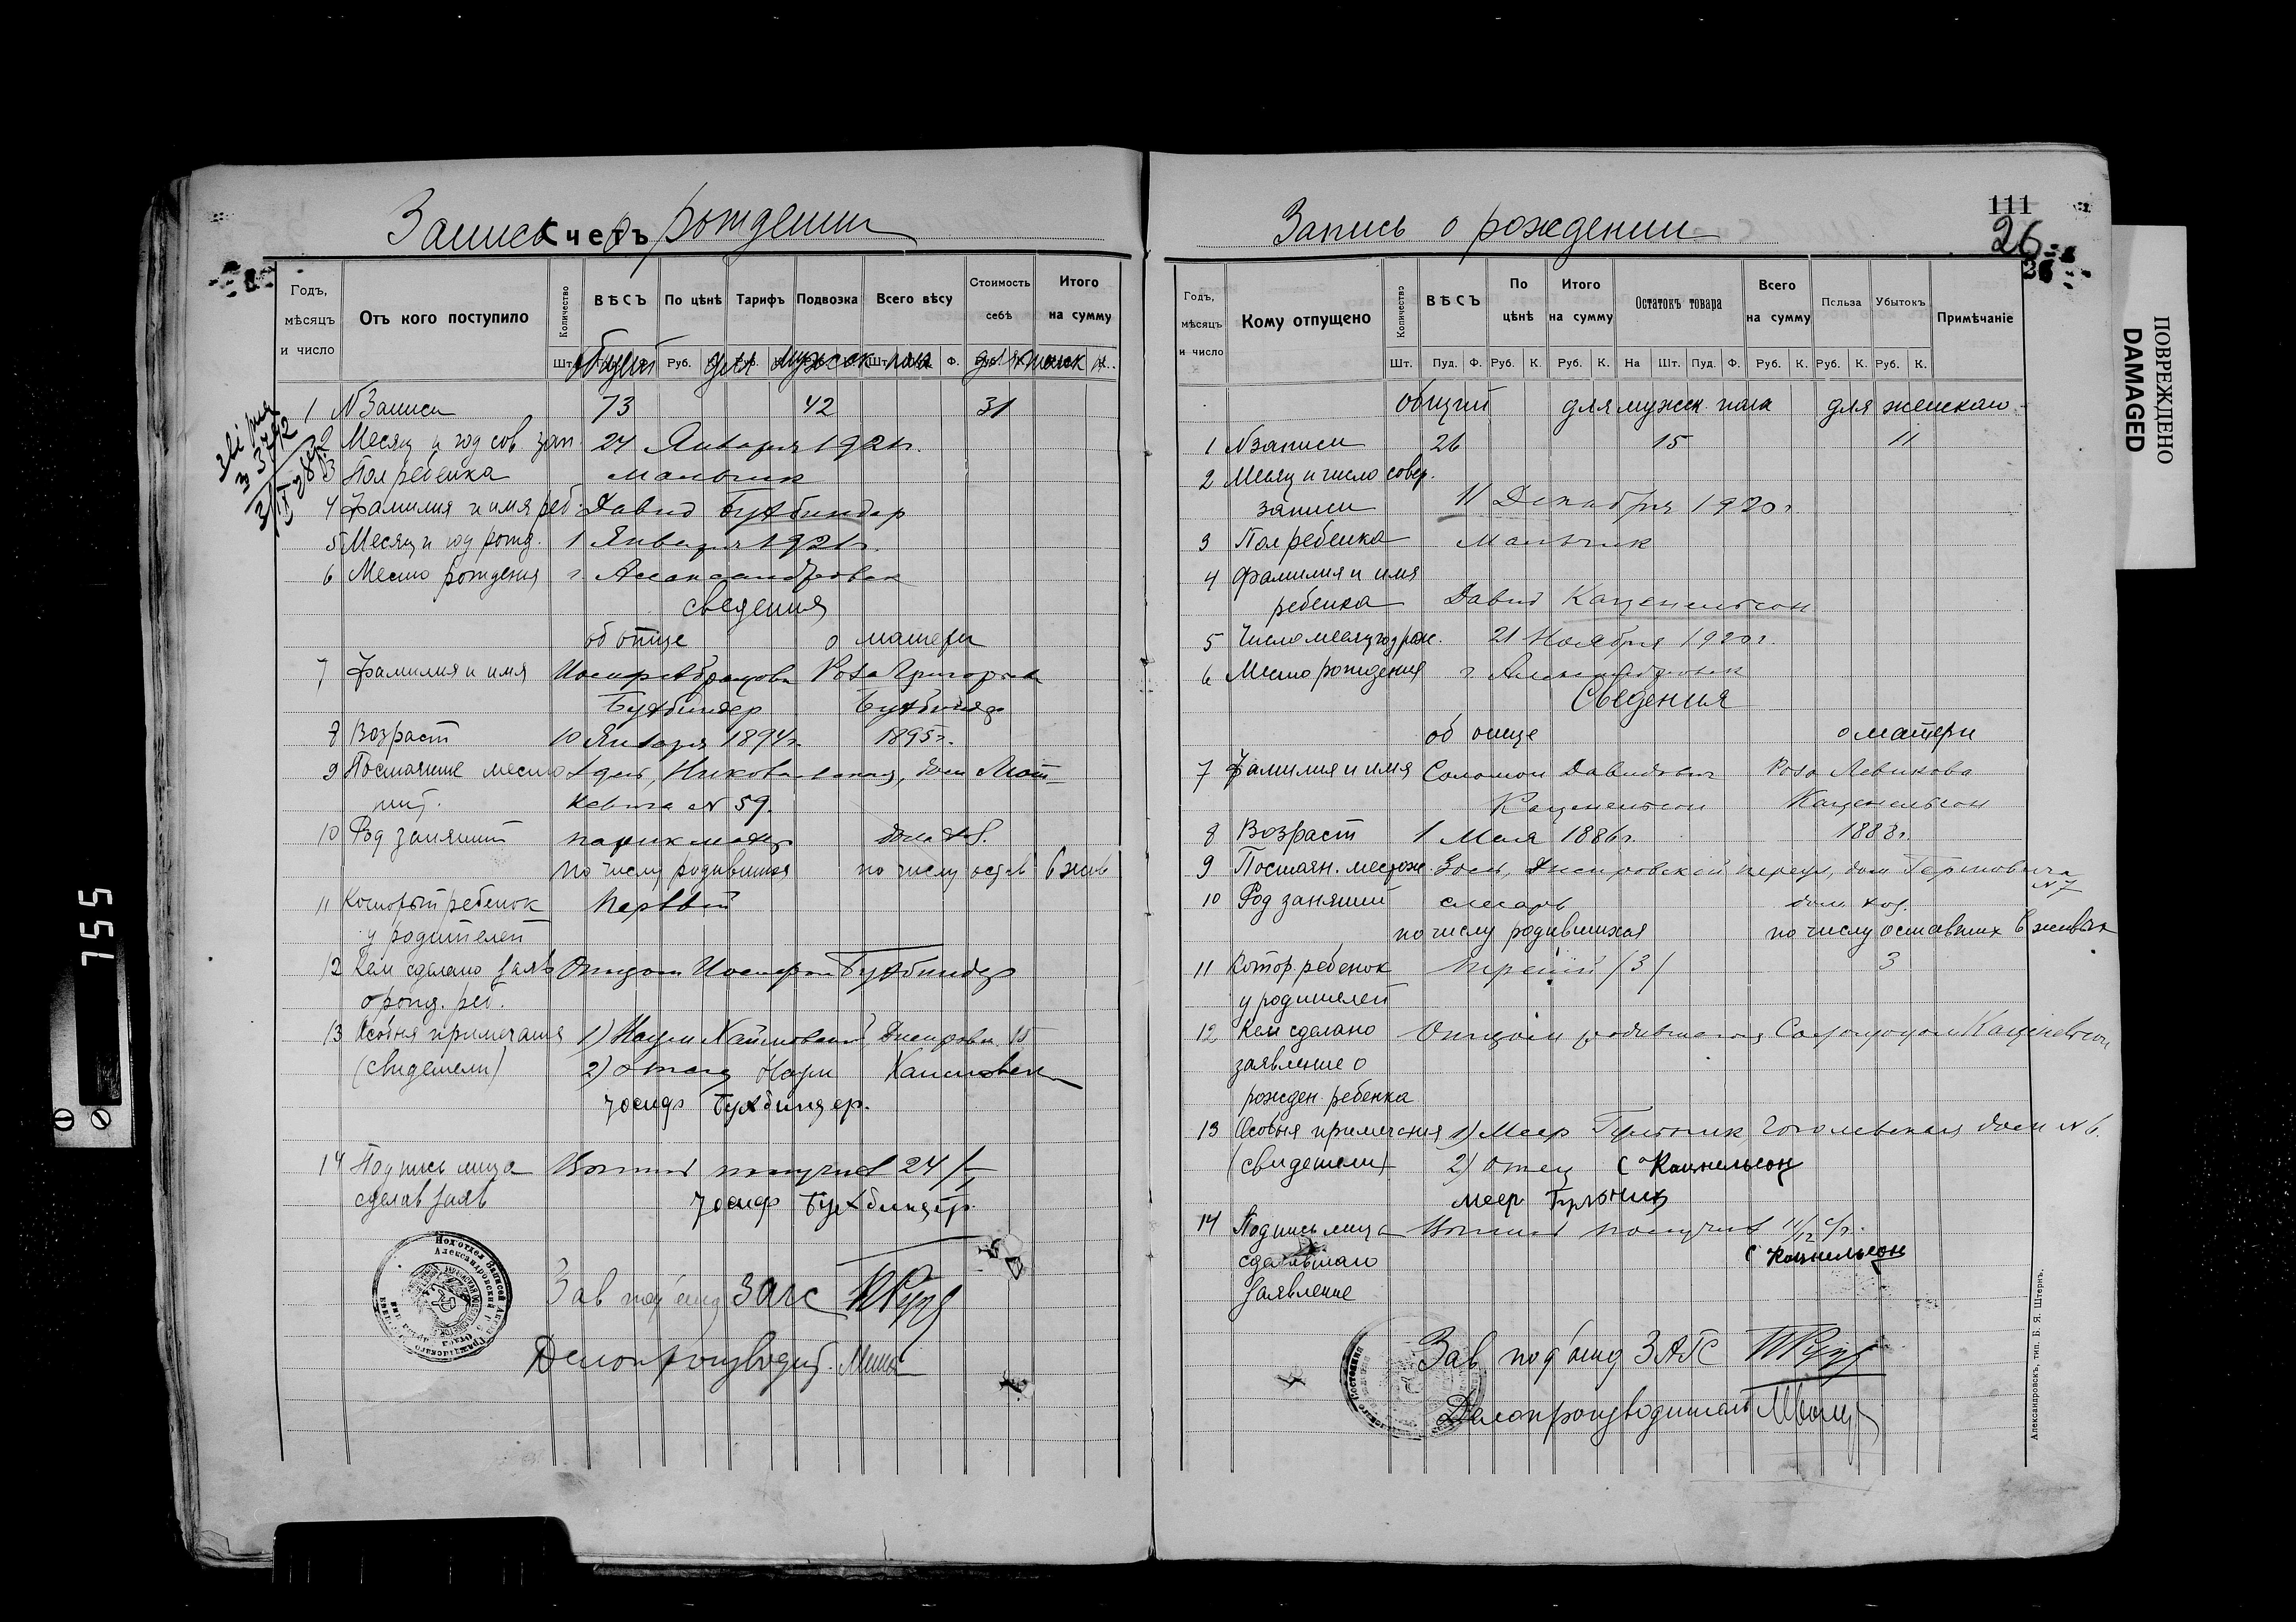 Запись о рождении
Счетъ
Годъ, мѣсяцъ и число
Отъ кого поступило
Количество
ВѢСЪ
По цѣнѣ
Тарифъ
Подвозка
Всего вѣсу
Стоимость себѣ
Итого на сумму
Общий для мужск пола для женск
1 N Записи 73 42 31
2 Месяц и год сов. зап. 24 Января 1921г.
3 Пол ребенка мальчик
4 Фамилия и имя реб. Давид Бухбиндер
5 Месяц и год рожд. 1 Января 1921г.
6 Место рождения г Александровск
сведения
об отце о матери
7 Фамилия и имя Иосиф Роза Григорьев
Бухбиндер Бухбиндер
8 Возраст 10 Января 1894г. 1895г.
9 Постоянное место здесь, дом
жит. N 59.
10 Род занятий парикмахер дом. хоз.
по числу родившихся по числу остав в жив
11 Который ребенок Первый
у родителей
12 Кем сделано заяв Отцом Иосифом Бухбиндер
о рожд. реб.
13 Особыя примечания 1)
(свидетели) 2) отец
Иосиф Бухбиндер.
14 Подпись лица получил 24/I
сделав заяв Иосиф Бухбиндер
Зав под'отд ЗАГС
Делопроизводит.
ПОВРЕЖДЕНО
DAMAGED
755
111
26
26
Запись о рождении
Годъ, мѣсяцъ и число
Кому отпущено
Количество
ВѢСЪ
По цѣнѣ
Итого на сумму
Остатокъ товара
Всего на сумму
Польза
Убытокъ
Примѣчаніе
Шт. Пуд. Ф. Руб. К. Руб. К. На Шт. Пуд. Ф. Руб. К. Руб. К. Руб. К.
общий для мужск пола для женского
1 N записи 26 15 11
2 Месяц и число совер.
записи 11 Декабря 1920г.
3 Пол ребенка Мальчик
4 Фамилия и имя
ребенка Давид Каценельсон
5 Число месяц год рож. 21 Ноября 1920г.
6 Место рождения г Александровск
Сведения
об отце о матери
7 Фамилия и имя Соломон Давидович Роза Левикова
Каценельсон Каценельсон
8 Возраст 1 Мая 1886г. 1888г.
9 Постоян. мест. ж. Здесь, Днепровский переул, дом
N 7
10 Род занятий слесарь дом. хоз.
по числу родившихся по числу оставших в живых
11 Котор. ребенок третий (3) 3
у родителей
12 Кем сделано Отцом родившагося Соломоном Каценельсон
заявление о
рожден. ребенка
13 Особыя примечания 1) Меер Гоголевская дом N 6.
(свидетели) 2) Отец С Кацнельсон
Меер
14 Подпись лица получил 11/12 с/г.
сделавшаго С Кацнельсон
заявление
Зав под'отд ЗАГС
Делопроизводитель
Александровскъ, тип. Б. Я. Штернъ.